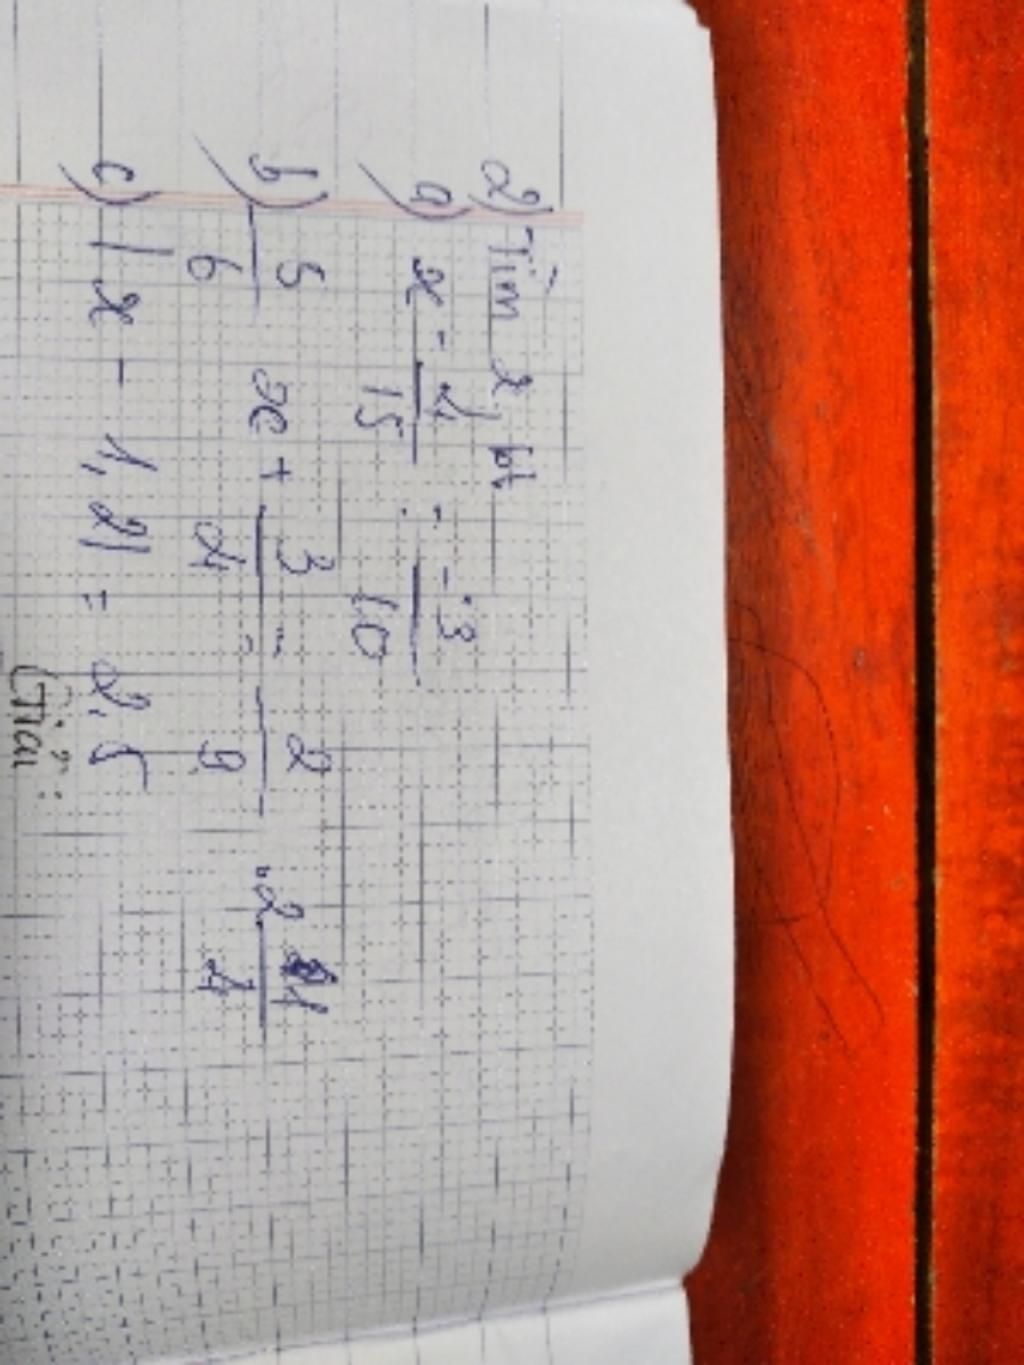 2) Tìm x, bt
a) x - 4/15 = -3/10
b) 5/6 x + 3/4 = 2/9 . 2 1/4
c) |x - 1,2| = 2,5
Giải: